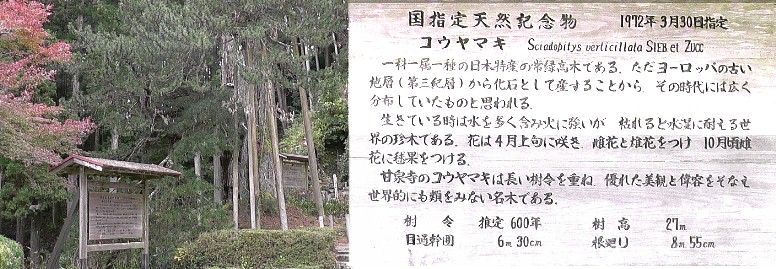 国指定天然記念物 1972年3月30日指定
コウヤマキ Sciadopitys verticillata SIEB et ZUCC
一科一属一種の日本特産の常緑高木である。ただヨーロッパの古い
地層(第三紀層)から化石として産することから、その時代には広く
分布していたものと思われる。
生きている時は水を多く含み火に強いが、枯れると水湿に耐える世
界の珍木である。花は4月上旬に咲き、雌花と雄花をつけ、10月頃雌
花に毬果をつける。
甘泉寺のコウヤマキは長い樹令を重ね、優れた美観と偉容をそなえ
世界的にも類をみない名木である。
樹令 推定600年 樹高 27m
目通幹囲 6m30cm 根廻り 8m55cm